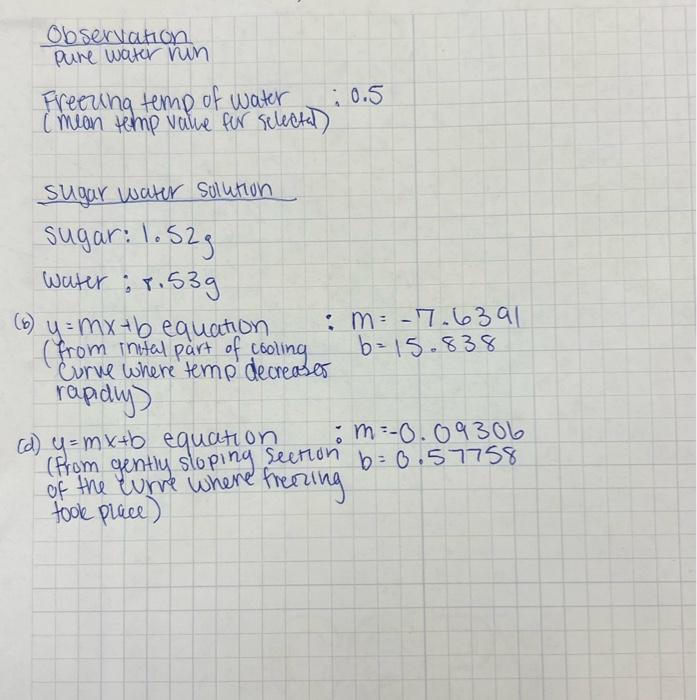 Observation
pure water run
Freezing temp of water : 0.5
(mean temp value for selected)
sugar water solution
sugar: 1.52g
water : 8.53g
(b) y=mx+b equation : m= -7.6391
(from inital part of cooling b=15.838
curve where temp decreases
rapidly)
(d) y=mx+b equation : m=-0.09306
(from gently sloping section b= 0.57758
of the curve where freezing
took place)